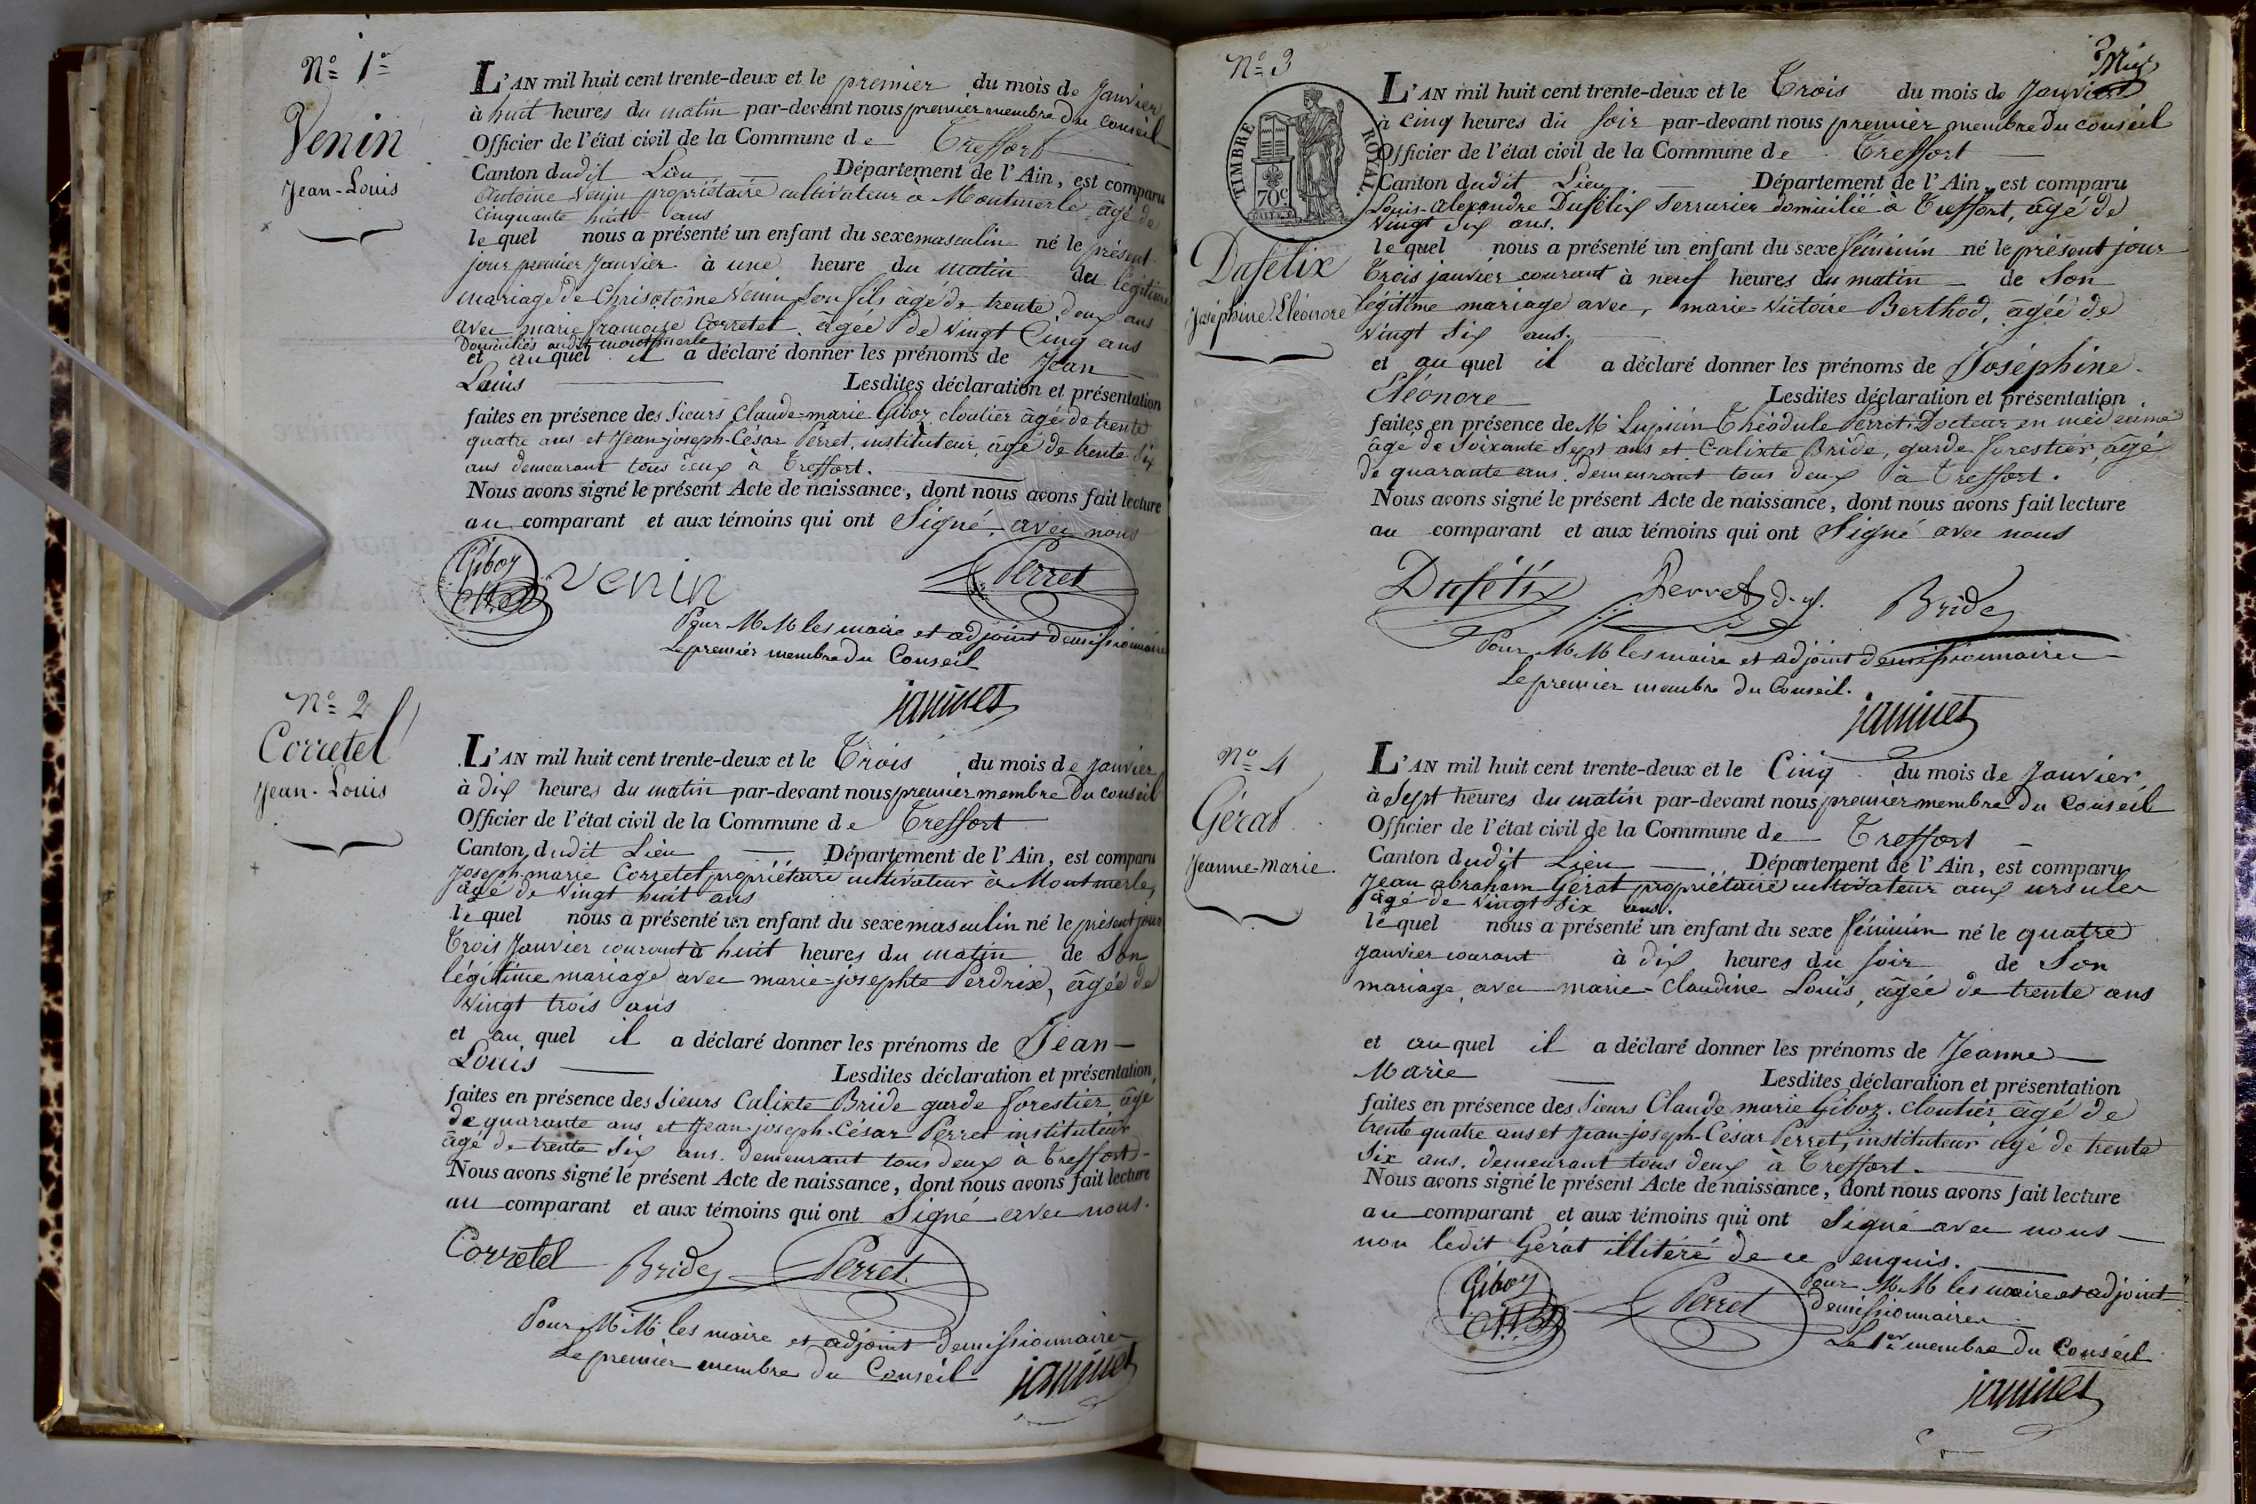 Nº 1º
Venin
Jean-Louis
L'AN mil huit cent trente-deux et le premier du mois de Janvier
à huit heures du matin par-devant nous premier membre du Conseil
Officier de l'état civil de la Commune de Treffort
Canton dudit Lieu Département de l'Ain, est comparu
Antoine Venin propriétaire cultivateur à Montmerle âgé de
cinquante huit ans
lequel nous a présenté un enfant du sexe masculin né le présent
jour premier Janvier à une heure du matin du légitime
mariage de Chrisotôme Venin son fils âgé de trente deux ans
avec marie françoise Corretel âgée de vingt Cinq ans
Domiciliés audit montmerle
et au quel il a déclaré donner les prénoms de Jean
Louis Lesdites déclaration et présentation
faites en présence des Sieurs Claude-marie Giboz cloutier âgé de trente
quatre ans et Jean-joseph-César Perret, instituteur, âgé de trente Six
ans demeurant tous deux à Treffort.
Nous avons signé le présent Acte de naissance, dont nous avons fait lecture
au comparant et aux témoins qui ont Signé, avec nous
Giboz venin Perret
Pour MM les maire et adjoint demissionnaires
Le premier membre du Conseil
janinet
Nº 2
Corretel
Jean-Louis
L'AN mil huit cent trente-deux et le Trois du mois de Janvier
à dix heures du matin par-devant nous premier membre du conseil
Officier de l'état civil de la Commune de Treffort
Canton dudit Lieu Département de l'Ain, est comparu
Joseph-marie Corretel propriétaire cultivateur à Montmerle,
âgé de vingt huit ans
lequel nous a présenté un enfant du sexe masculin né le présent jour
Trois Janvier courant à huit heures du matin de Son
légitime mariage avec marie-josephte Perdrix, âgée de
vingt trois ans
et au quel il a déclaré donner les prénoms de Jean-
Louis Lesdites déclaration et présentation,
faites en présence des Sieurs Calixte Bride garde forestier, âgé
de quarante ans et Jean-joseph-César Perret instituteur
âgé de trente Six ans. demeurant tous deux à Treffort-
Nous avons signé le présent Acte de naissance, dont nous avons fait lecture
au comparant et aux témoins qui ont Signé avec nous.
Corretel Bride Perret
Pour MM les maire et adjoint demissionnaires
Le premier membre du Conseil janinet
Nº 3
TIMBRE ROYAL.
70c
Dufélix
Joséphine Eléonore
L'AN mil huit cent trente-deux et le Trois du mois de Janvier
à cinq heures du soir par-devant nous premier membre du conseil
Officier de l'état civil de la Commune de Treffort
Canton dudit Lieu Département de l'Ain, est comparu
Louis-Alexandre Dufélix Serrurier domicilié à Treffort, âgé de
vingt Six ans.
lequel nous a présenté un enfant du sexe féminin né le présent jour
Trois janvier courant à neuf heures du matin de Son
légitime mariage avec, marie-Victoire Berthod, âgée de
vingt Six ans.
et au quel il a déclaré donner les prénoms de Joséphine-
Eléonore Lesdites déclaration et présentation
faites en présence de M. Lupicin Théodule Perret, Docteur en médecine
âgé de Soixante Sept ans et Calixte Bride, garde forestier, âgé
de quarante ans. demeurant tous deux à Treffort.
Nous avons signé le présent Acte de naissance, dont nous avons fait lecture
au comparant et aux témoins qui ont Signé avec nous
Dufélix Perret Bride
Pour MM les maire et adjoint demissionnaires
Le premier membre du Conseil.
janinet
Nº 4
Gérat
Jeanne-Marie.
L'AN mil huit cent trente-deux et le Cinq du mois de Janvier
à Sept heures du matin par-devant nous premier membre du Conseil
Officier de l'état civil de la Commune de Treffort
Canton dudit Lieu Département de l'Ain, est comparu
Jean abraham Gérat propriétaire cultivateur aux ursules
âgé de vingt Six ans.
lequel nous a présenté un enfant du sexe féminin né le quatre
janvier courant à dix heures du soir de Son
mariage, avec marie-Claudine Louis, âgée de trente ans
et au quel il a déclaré donner les prénoms de Jeanne
Marie Lesdites déclaration et présentation
faites en présence des Sieurs Claude marie Giboz, cloutier, âgé de
trente quatre ans et Jean-joseph-César Perret, instituteur âgé de trente
Six ans. demeurant tous deux à Treffort.
Nous avons signé le présent Acte de naissance, dont nous avons fait lecture
au comparant et aux témoins qui ont Signé avec nous
non ledit Gérat illitéré de ce enquis.
Giboz Perret
Pour MM les maire et adjoint
demissionnaires
Le 1er membre du Conseil
janinet